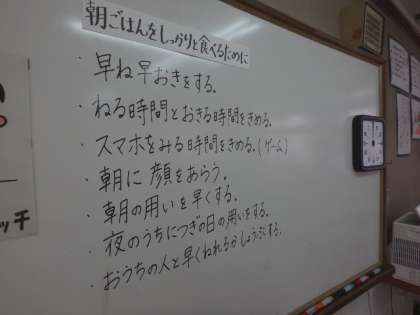 朝ごはんをしっかりと食べるために
・早ね早おきをする。
・ねる時間とおきる時間をきめる。
・スマホをみる時間をきめる。(ゲーム)
・朝に顔をあらう。
・朝の用いを早くする。
・夜のうちにつぎの日の用いをする。
・おうちの人と早くねれるかしょうぶする。
ッチ